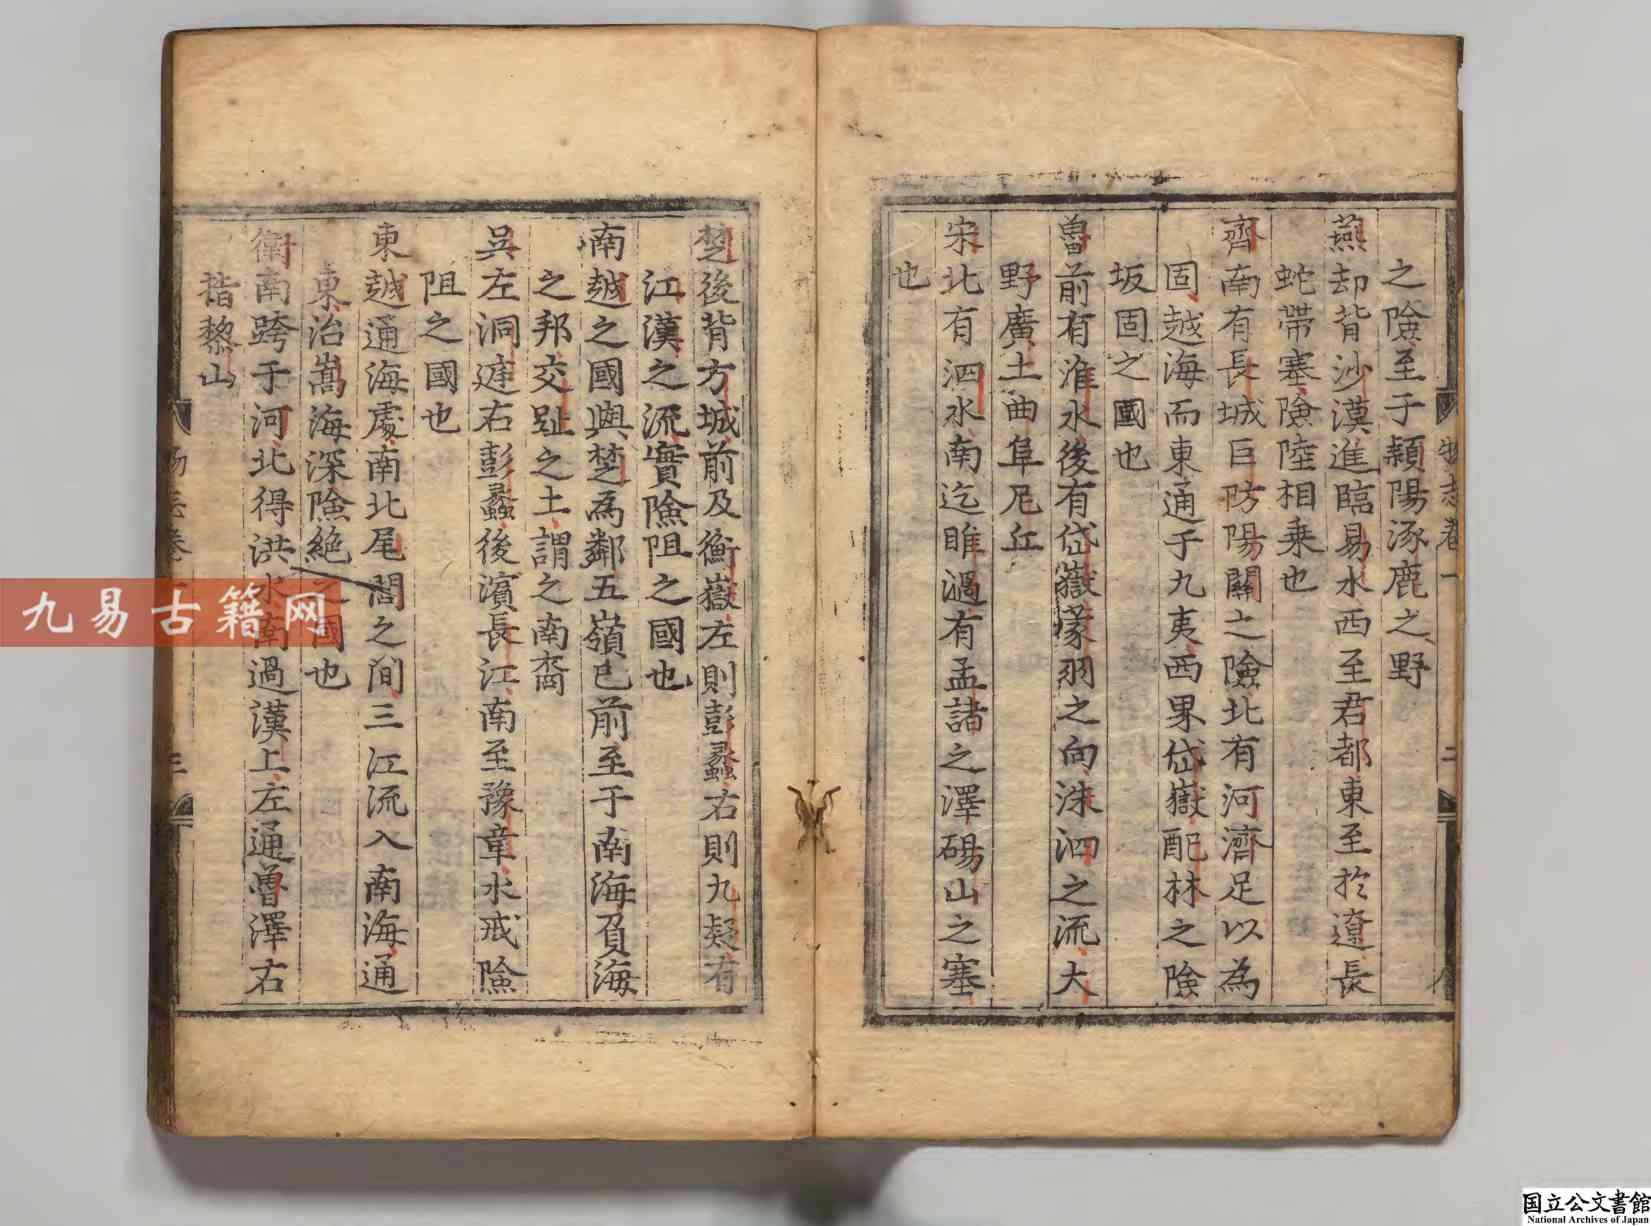 之險至于潁陽涿鹿之野
燕却背沙漠進臨易水西至君都東至於遼長
蛇帶塞險陸相乗也
齊南有長城巨防陽關之險北有河濟足以為
固越海而東通于九夷西界岱嶽配林之險
坂固之國也
魯前有淮水後有岱嶽蒙羽之向洙泗之流大
野廣土曲阜尼丘
宋北有泗水南迄睢濄有孟諸之澤碭山之塞
也
楚後背方城前及衡嶽左則彭蠡右則九疑有
江漢之流實險阻之國也
南越之國與楚為鄰五嶺已前至于南海負海
之邦交趾之土謂之南裔
吳左洞庭右彭蠡後濱長江南至豫章水戒險
阻之國也
東越通海處南北尾閭之間三江流入南海通
東治嵩海深險絶之國也
衛南跨于河北得洪水南過漢上左通魯澤右
指黎山
物志卷一
二
九易古籍网
国立公文書館
National Archives of Japan